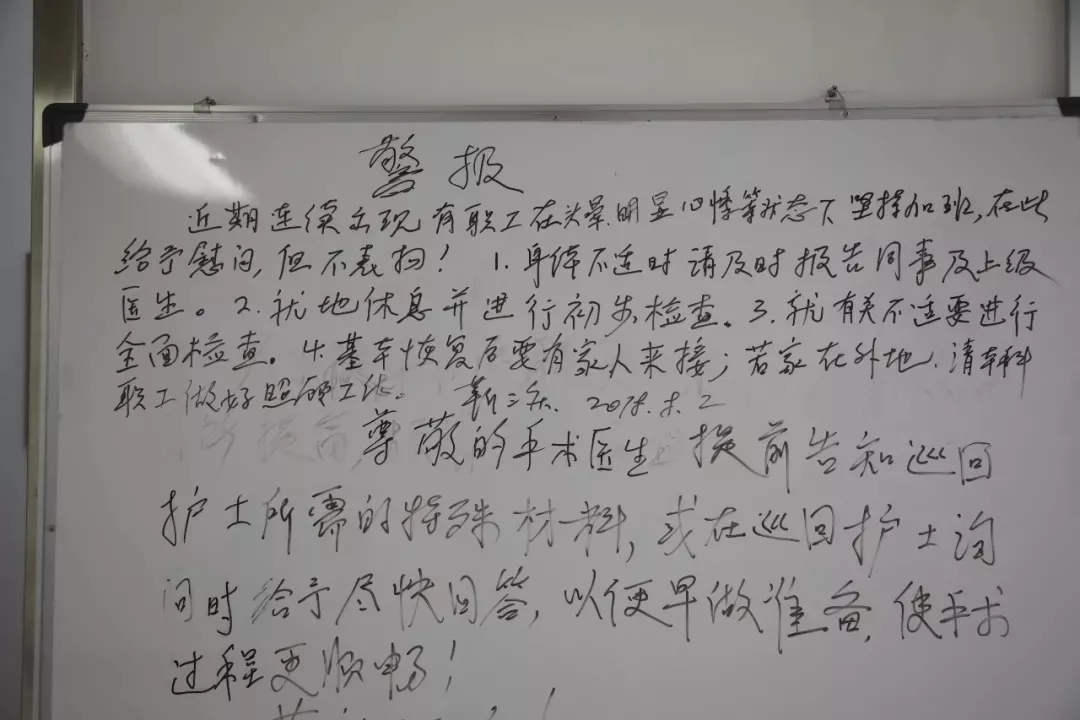 警报
近期连续出现有职工在头晕.明显心悸等状态下坚持加班,在此
给予慰问,但不表扬! 1.身体不适时请及时报告同事及上级
医生。2.就地休息并进行初步检查。3.就有关不适要进行
全面检查。4.基本恢复后要有家人来接;若家在外地.请本科
职工做好照顾工作。 靳三庆. 2018.
尊敬的手术医生 提前告知巡回
护士所需的特殊材料,或在巡回护士询
问时给予尽快回答,以便早做准备,使手术
过程更顺畅!